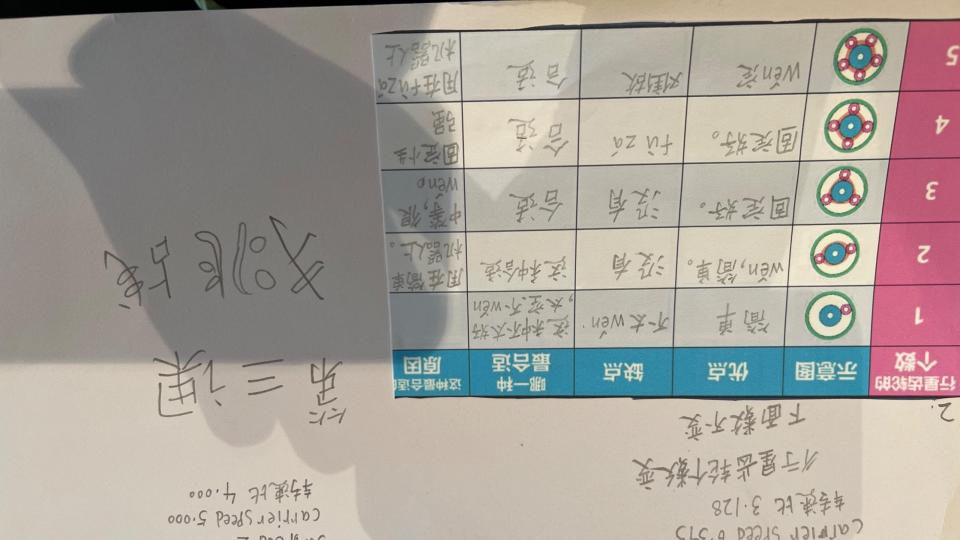 carrier speed 6.375
转速比 3.128
行星齿轮个数变
下面数不变
2.
行星齿轮的
个数
示意图
优点
缺点
哪一种
最合适
这种最合适
原因
1
简单
不太wěn
这种不太好
,太空.不wěn
2
wěn,简单。
没有
这种合适
用在简单
机器人上。
3
固定好。
没有
合适
中等,很
wěn。
4
固定好。
fù zá
合适
固定性
强
5
wěn定
合适
用在fùzá
机器人上
carrier speed 5.000
转速比 4.000
第三课